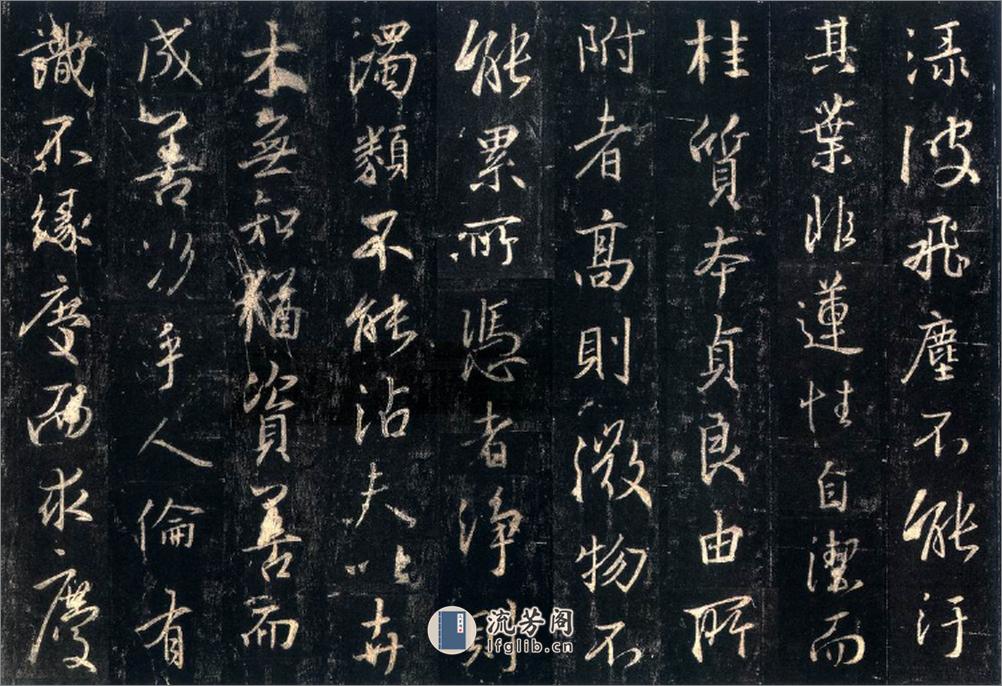 渌波飛塵不能汙
其葉非蓮性自潔而
桂質本貞良由所
附者高則微物不
能累所憑者淨則
濁類不能沾夫以卉
木無知猶資善而
成善況乎人倫有
識不緣慶而求慶
流芳阁
lfglib.cn